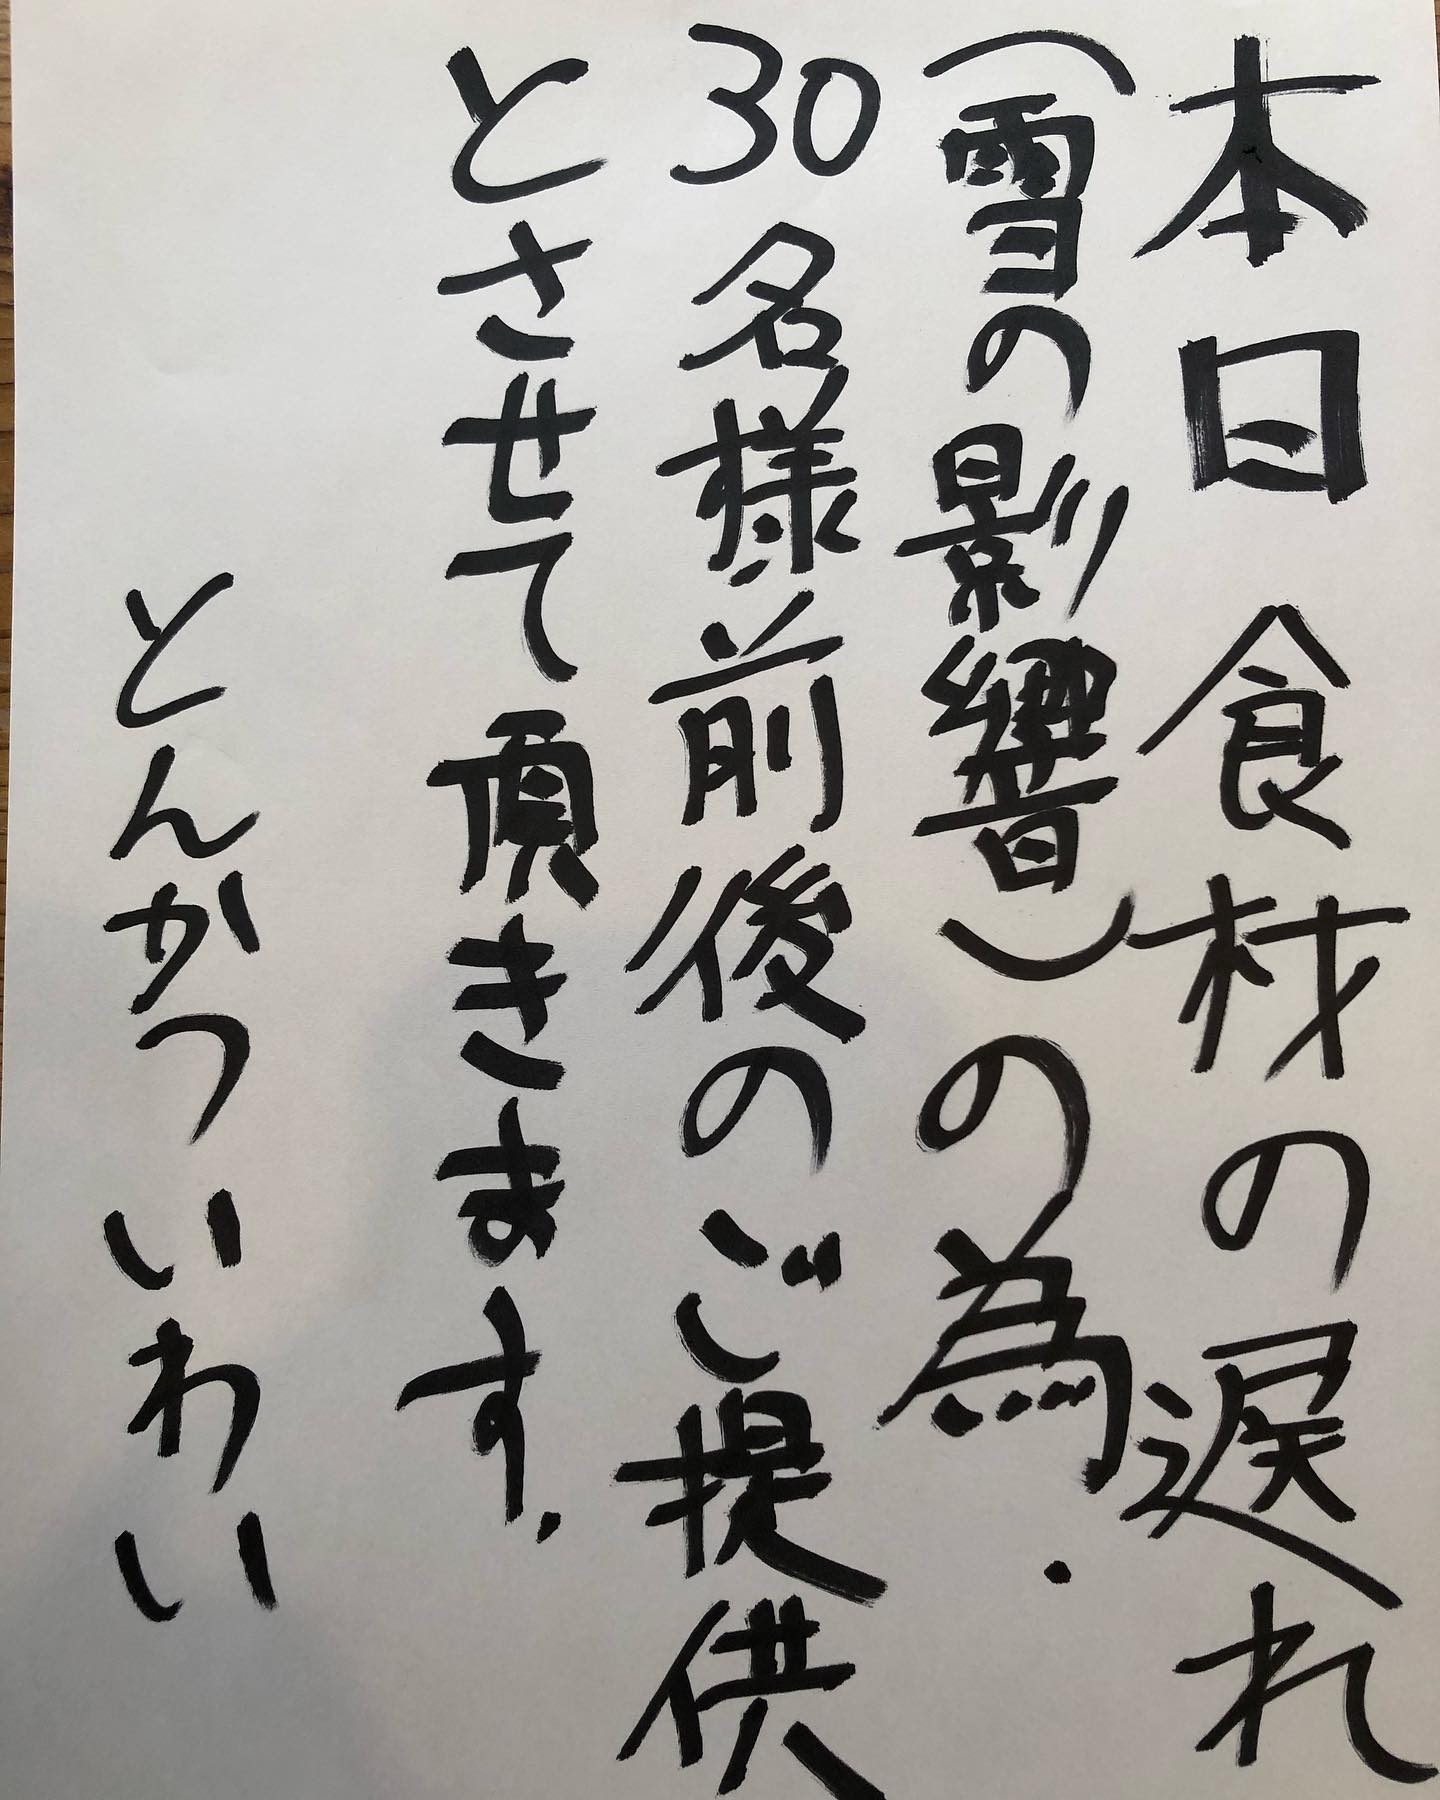 本日食材の遅れ
（雪の影響）の為.
30名様前後のご提供
とさせて頂きます.
とんかついわい